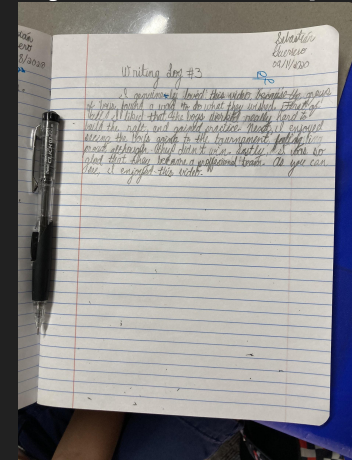 Sebastián
Guerrero
Writing Log #3
I genuinely loved this video because the group
of boys found a way to do what they wished. First of
all, I liked that the boys worked really hard to
build the raft, and gained practice. Next, I enjoyed
seeing the boys going to the tournament, feeling
most although they didn't win. Lastly, I was so
glad that they became a professional team. As you can
see, I enjoyed this video.